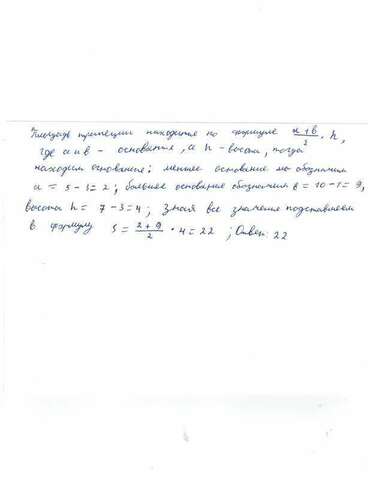 Площадь трапеции находится по формуле a+b/2 · h,
где a и b - основания, а h - высота, тогда
находим основания: меньшее основание мы обозначим
a = 5-3=2; большее основание обозначим b = 10-1=9,
высота h = 7-3=4; Зная все значения подставляем
в формулу S = 2+9/2 · 4=22 ; Ответ: 22